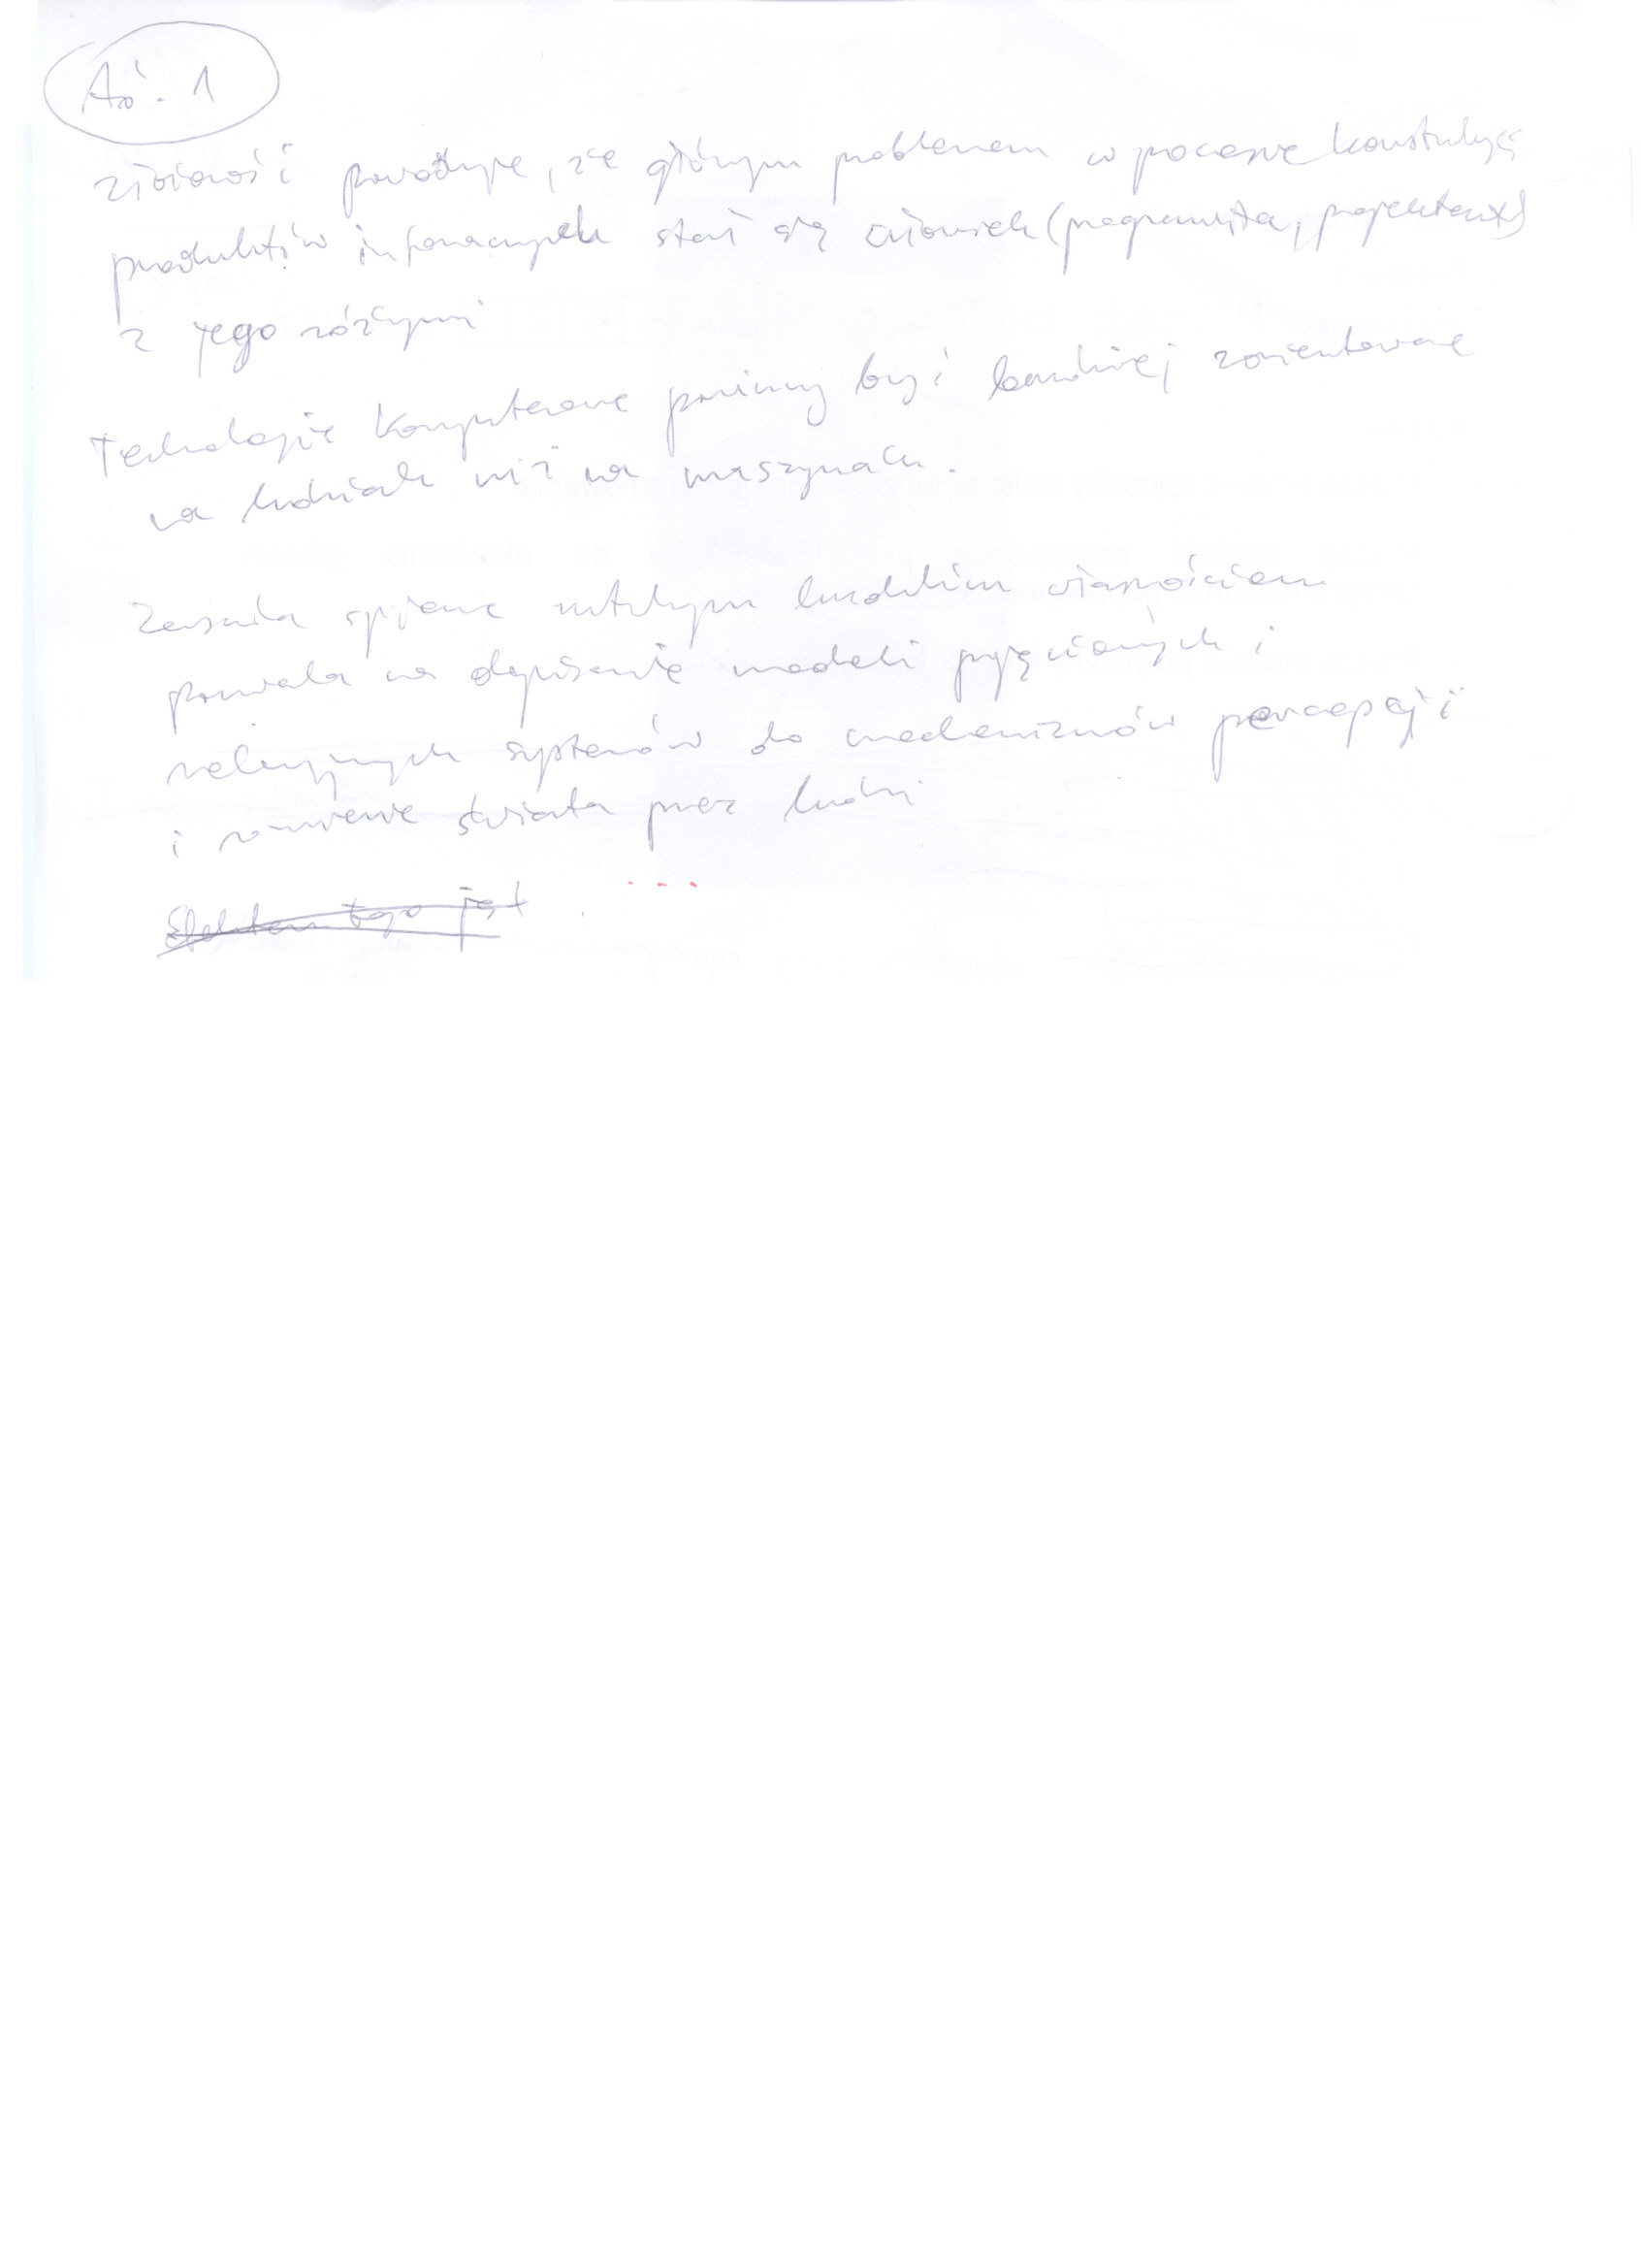 złożoność powoduje, że głównym problemem w procesie konstrukcji
produktów informacyjnych stał się człowiek (programista, projektant)
z jego różnymi
Technologie komputerowe powinny być bardziej zorientowane
na ludziach niż na maszynach.
Zasada sprzeciw ludzkim własnościom
pozwala na dopisanie modeli pojęciowych i
relacyjnych systemów do mechanizmów percepcji
i rozumienie świata przez ludzi
Efektem tego jest ...